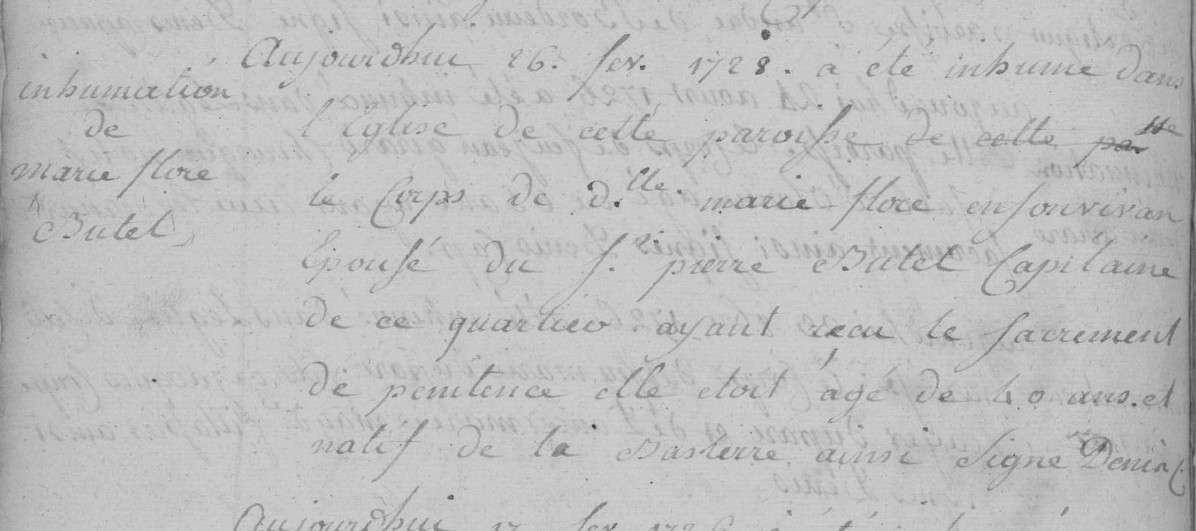 Aujourdhui 26. fev. 1728. a été inhumé dans
l'Eglise de cette paroisse de cette pa
le Corps de d.lle marie flore en souvivan
Epousé du s.r pierre Butel Capitaine
de ce quartier ayant recu le sacrement
de penitence elle etoit agé de 40 ans. et
natif de la Basterre ainsi Signé
inhumation
de
marie flore
Butel
Aujourdhui 17 fev. 1726